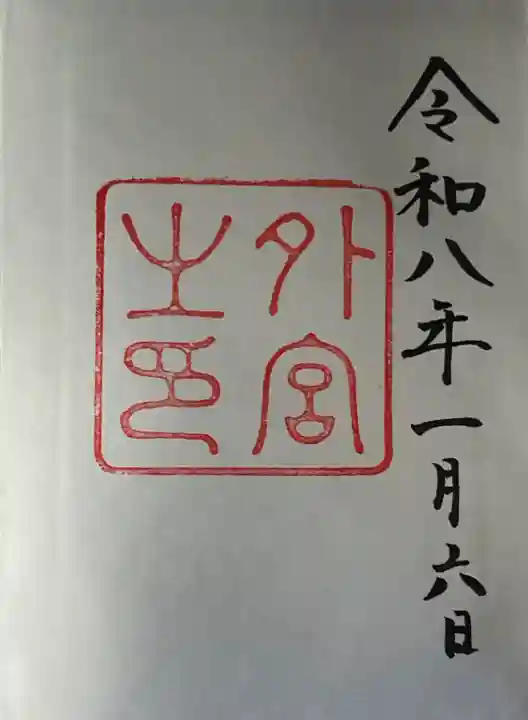 令和八年一月六日
外宮
之印